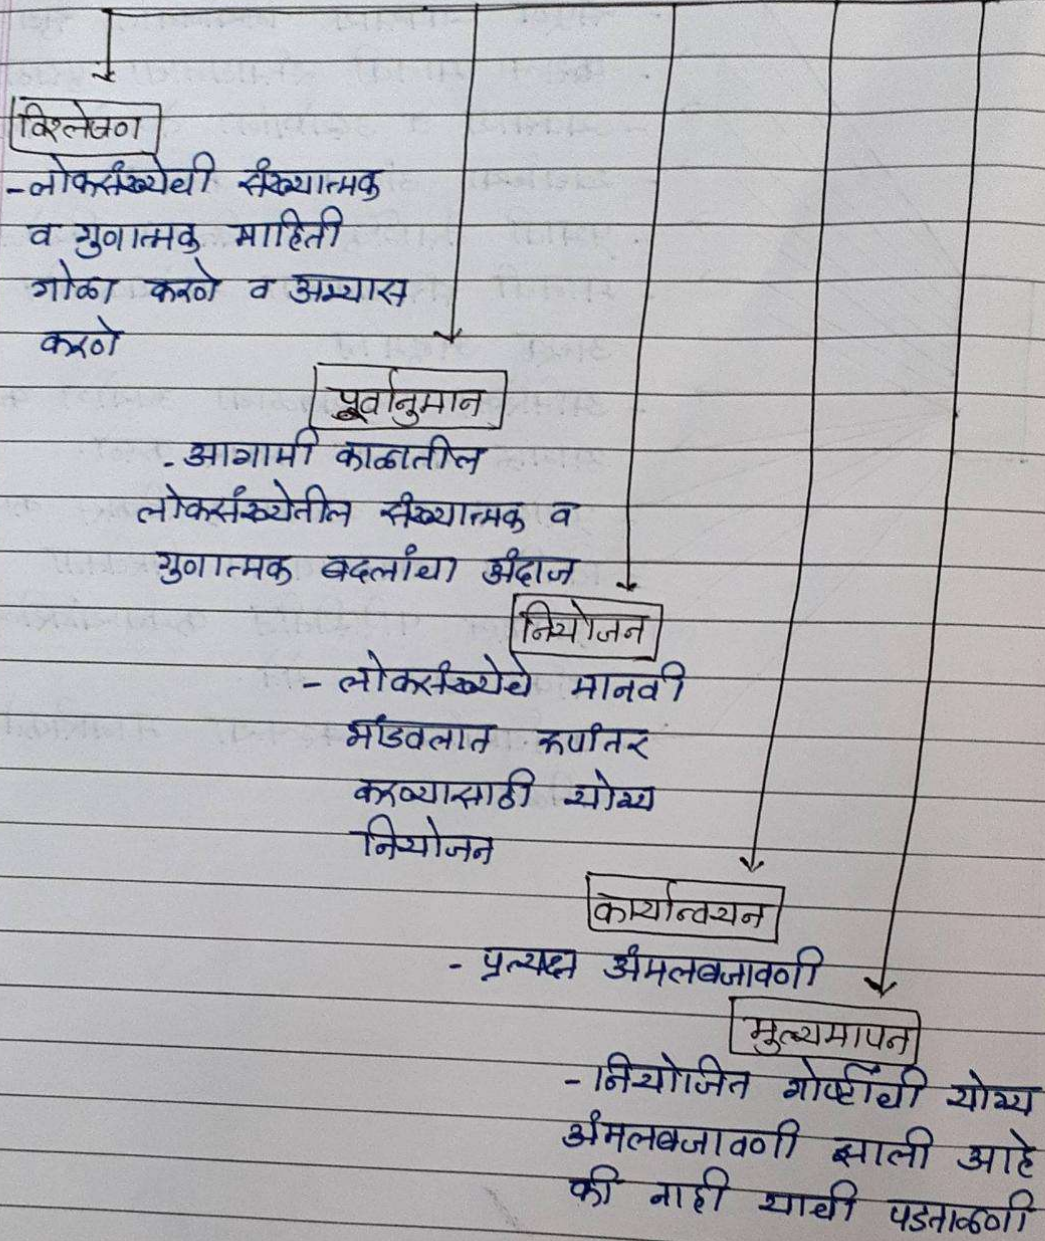 विश्लेषण
- लोकसंख्येची संख्यात्मक
व गुणात्मक माहिती
गोळा करणे व अभ्यास
करणे
पूर्वानुमान
- आगामी काळातील
लोकसंख्येतील संख्यात्मक व
गुणात्मक बदलांचा अंदाज
नियोजन
- लोकसंख्येचे मानवी
भांडवलात रूपांतर
करण्यासाठी योग्य
नियोजन
कार्यान्वयन
- प्रत्यक्ष अंमलबजावणी
मुल्यमापन
- नियोजित गोष्टींची योग्य
अंमलबजावणी झाली आहे
की नाही याची पडताळणी